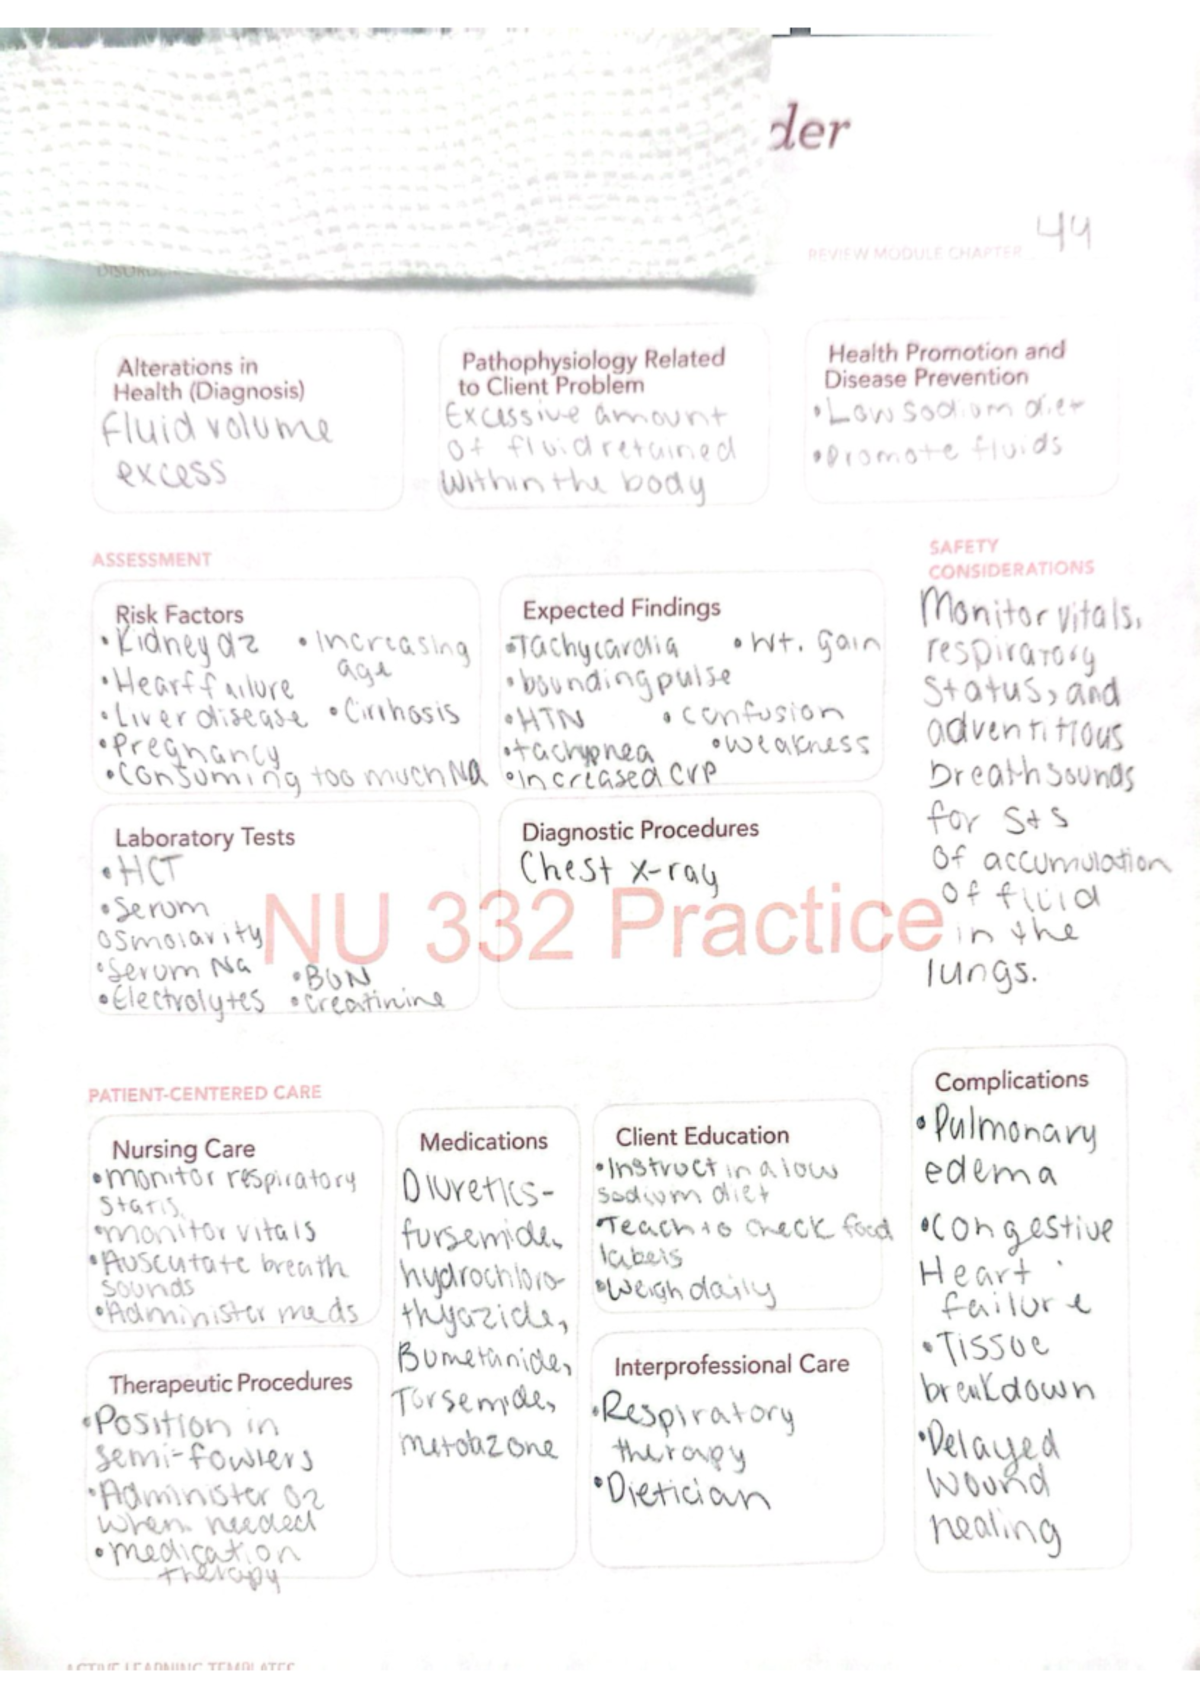 der
REVIEW MODULE CHAPTER 44
Alterations in
Health (Diagnosis)
Fluid volume
excess
Pathophysiology Related
to Client Problem
Excessive amount
of fluid retained
within the body
Health Promotion and
Disease Prevention
•Low sodium diet
•Promote fluids
ASSESSMENT
SAFETY
CONSIDERATIONS
Risk Factors
•Kidney dz •Increasing
age
•Heart failure
•Liver disease •Cirrhosis
•Pregnancy
•Consuming too much Na
Expected Findings
•Tachycardia •Wt. gain
•bounding pulse
•HTN •confusion
•tachypnea •weakness
•Increased CVP
Monitor vitals,
respiratory
status, and
adventitious
breath sounds
for S+S
of accumulation
of fluid
in the
lungs.
Laboratory Tests
•HCT
•Serum
osmolarity
•Serum Na •BUN
•Electrolytes •creatinine
Diagnostic Procedures
Chest x-ray
NU 332 Practice
PATIENT-CENTERED CARE
Nursing Care
•monitor respiratory
status.
•monitor vitals
•Auscutate breath
sounds
•Administer meds
Medications
Diuretics-
fursemide,
hydrochloro-
thyazide,
Bumetanide,
Torsemide,
metolazone
Client Education
•Instruct in a low
sodium diet
•Teach to check food
labels
•Weigh daily
Complications
•Pulmonary
edema
•Congestive
Heart
failure
•Tissue
breakdown
•Delayed
wound
healing
Therapeutic Procedures
•Position in
semi-fowlers
•Administer O2
when needed
•medication
therapy
Interprofessional Care
•Respiratory
therapy
•Dietician
ACTIVE LEARNING TEMPLATES